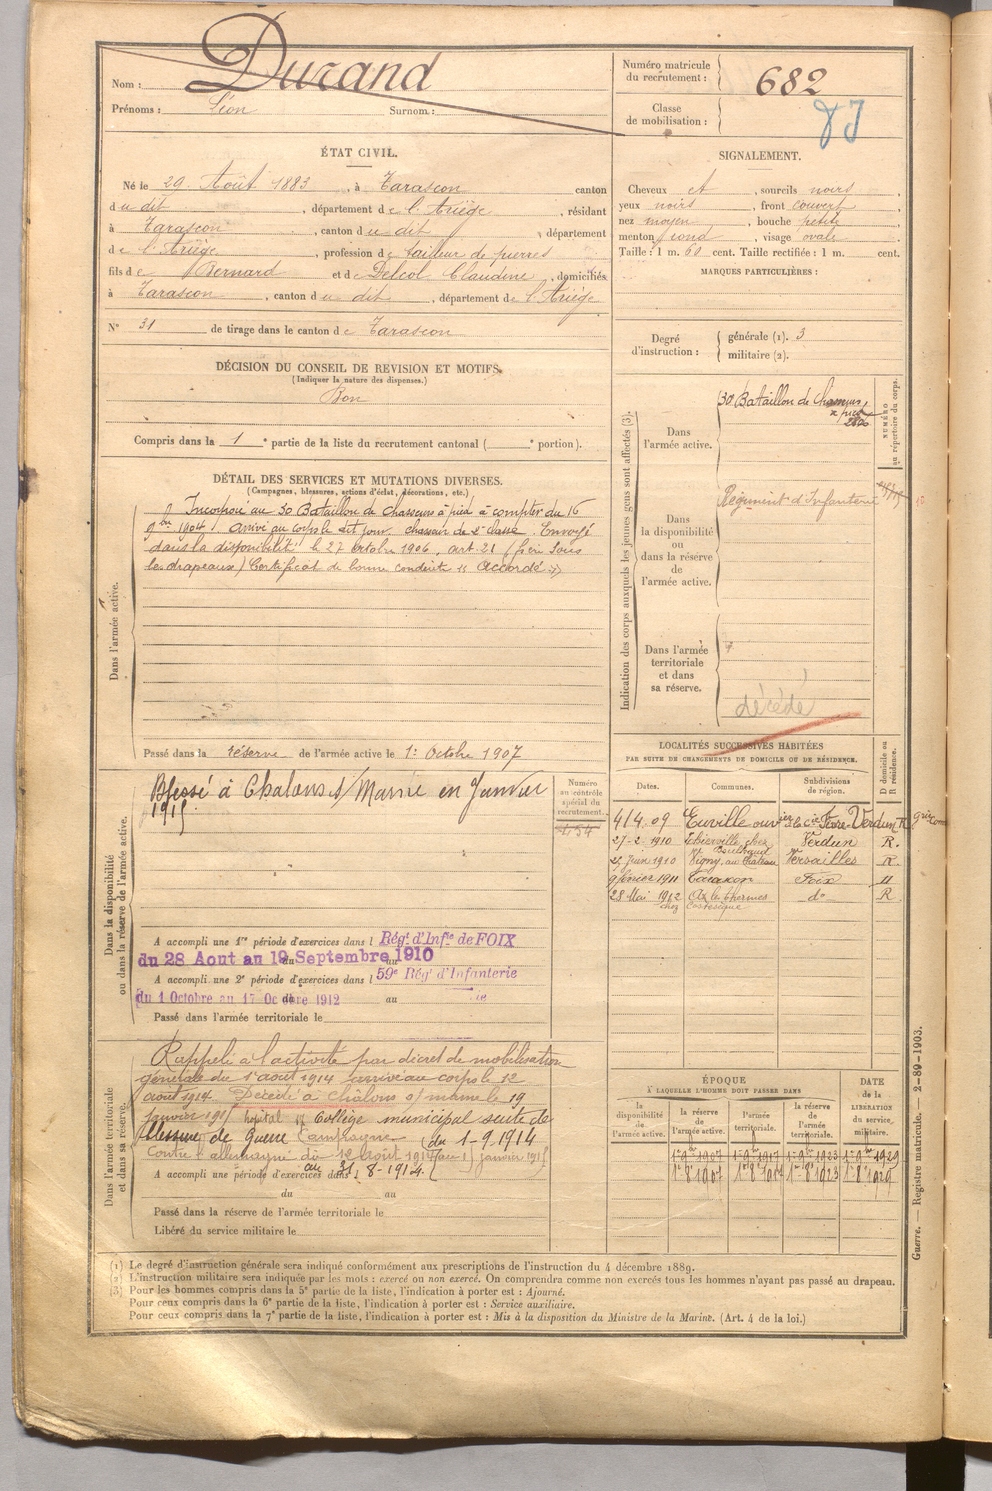 Nom : Durand
Prénoms : Léon Surnom :
Numéro matricule du recrutement : 682
Classe de mobilisation :
ÉTAT CIVIL.
Né le 29 Août 1883, à Tarascon canton
du dit, département de l'Ariège, résidant
à Tarascon, canton du dit, département
de l'Ariège, profession de tailleur de pierres
fils de Bernard et de Delcol Claudine, domiciliés
à Tarascon, canton du dit, département de l'Ariège
N° 31 de tirage dans le canton de Tarascon
SIGNALEMENT.
Cheveux et, sourcils noirs,
yeux noirs, front couvert,
nez moyen, bouche petite,
menton rond, visage ovale
Taille : 1 m. 60 cent. Taille rectifiée : 1 m. cent.
MARQUES PARTICULIÈRES :
Degré d'instruction : générale (1). 3
militaire (2).
DÉCISION DU CONSEIL DE REVISION ET MOTIFS.
(Indiquer la nature des dispenses.)
Bon
Compris dans la 1e partie de la liste du recrutement cantonal ( e portion).
DÉTAIL DES SERVICES ET MUTATIONS DIVERSES.
(Campagnes, blessures, actions d'éclat, décorations, etc.)
Dans l'armée active.
Incorporé au 30 Bataillon de Chasseurs à pied à compter du 16
9bre 1904. Arrivé au corps le dit jour, chasseur de 2e classe. Envoyé
dans la disponibilité le 27 octobre 1906, art. 21 (frère sous
les drapeaux) Certificat de bonne conduite "Accordé"
Passé dans la réserve de l'armée active le 1er Octobre 1907
Indication des corps auxquels les jeunes gens sont affectés (3).
Dans l'armée active.
30 Bataillon de Chasseurs
à pied
NUMÉRO au répertoire du corps.
Dans la disponibilité ou dans la réserve de l'armée active.
Régiment d'Infanterie
Dans l'armée territoriale et dans sa réserve.
décédé
Dans la disponibilité ou dans la réserve de l'armée active.
Blessé à Chalons s/ Marne en Janvier
1915
Numéro au contrôle spécial du recrutement.
A accompli une 1re période d'exercices dans l Régt d'Infie de FOIX
du 28 Aout au 19 Septembre 1910
A accompli une 2e période d'exercices dans l 59e Régt d'Infanterie
du 1 Octobre au 17 Octobre 1912 au
Passé dans l'armée territoriale le
LOCALITÉS SUCCESSIVES HABITÉES
PAR SUITE DE CHANGEMENTS DE DOMICILE OU DE RÉSIDENCE.
Dates. Communes. Subdivisions de région. D domicile ou R résidence.
4/4 09 Euville Verdun R
27-2-1910 Thierville chez Verdun R.
25 Juin 1910 Vigny, au château Versailles R.
9 février 1911 Tarascon Foix
28 Mai 1912 Ax les thermes do R
chez
Dans l'armée territoriale et dans sa réserve.
Rappelé à l'activité par décret de mobilisation
générale du 1er août 1914 arrivé au corps le 12
août 1914. Décédé à Châlons s/ marne le 19
janvier 1915 hôpital Collège municipal suite de
blessure de guerre Campagne (du 1-9-1914
contre l'allemagne du 12 août 1914 au 19 janvier 1915
au 31-8-1914.
A accompli une période d'exercices dans l
du au
Passé dans la réserve de l'armée territoriale le
Libéré du service militaire le
ÉPOQUE
À LAQUELLE L'HOMME DOIT PASSER DANS
la disponibilité de l'armée active. la réserve de l'armée active. l'armée territoriale. la réserve de l'armée territoriale.
DATE de la LIBÉRATION du service militaire.
1-9bre 1907 1-9bre 1917 1-9bre 1923 1-9bre 1929
1-8bre 1907 1-8bre 1917 1-8bre 1923 1-8bre 1929
(1) Le degré d'instruction générale sera indiqué conformément aux prescriptions de l'instruction du 4 décembre 1889.
(2) L'instruction militaire sera indiquée par les mots : exercé ou non exercé. On comprendra comme non exercés tous les hommes n'ayant pas passé au drapeau.
(3) Pour les hommes compris dans la 5e partie de la liste, l'indication à porter est : Ajourné.
Pour ceux compris dans la 6e partie de la liste, l'indication à porter est : Service auxiliaire.
Pour ceux compris dans la 7e partie de la liste, l'indication à porter est : Mis à la disposition du Ministre de la Marine. (Art. 4 de la loi.)
Guerre. — Registre matricule. — 2-89-1903.